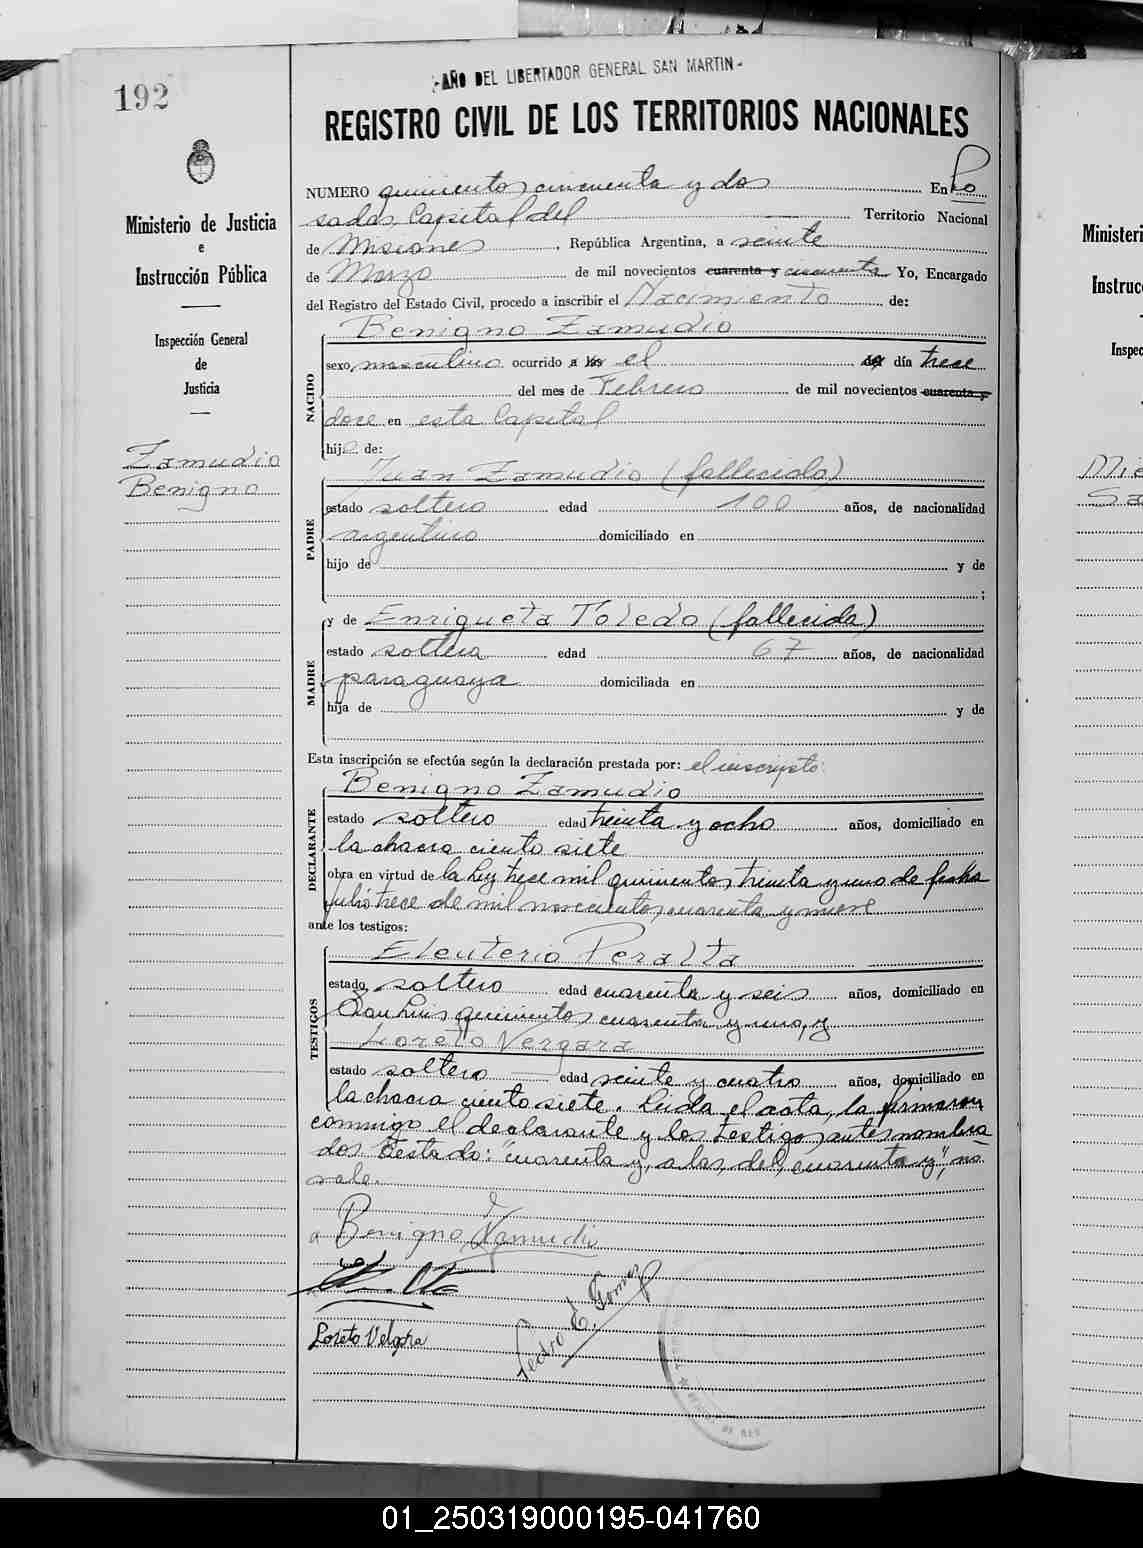 192
-AÑO DEL LIBERTADOR GENERAL SAN MARTIN-
REGISTRO CIVIL DE LOS TERRITORIOS NACIONALES
Ministerio de Justicia
e
Instrucción Pública
Inspección General
de
Justicia
Zamudio
Benigno
NUMERO quinientos cincuenta y dos En Po
sadas, Capital del Territorio Nacional
de Misiones, República Argentina, a veinte
de Marzo de mil novecientos cuarenta y cincuenta Yo, Encargado
del Registro del Estado Civil, procedo a inscribir el Nacimiento de:
NACIDO
Benigno Zamudio
sexo masculino ocurrido a las el del día trece
del mes de Febrero de mil novecientos cuarenta y
doce en esta Capital
hijo de:
PADRE
Juan Zamudio (fallecido)
estado soltero edad 100 años, de nacionalidad
argentino domiciliado en
hijo de y de
;
MADRE
y de Enriqueta Toledo (fallecida)
estado soltera edad 67 años, de nacionalidad
paraguaya domiciliada en
hija de y de
Esta inscripción se efectúa según la declaración prestada por: el inscripto
DECLARANTE
Benigno Zamudio
estado soltero edad treinta y ocho años, domiciliado en
la chacra ciento siete
obra en virtud de la Ley trece mil quinientos treinta y uno de fecha
julio trece de mil novecientos cuarenta y nueve
ante los testigos:
TESTIGOS
Eleuterio Peralta
estado soltero edad cuarenta y seis años, domiciliado en
San Luis quinientos cuarenta y uno, y
Loreto Vergara
estado soltero edad veinte y cuatro años, domiciliado en
la chacra ciento siete. Leida el acta, la firmaron
conmigo el declarante y los testigos antes nombra
dos Testado: "cuarenta y, a las, del, cuarenta y", no
vale.
Benigno Zamudio
Loreto Velgara
Pedro E. Gomez
Ministeri
Instruc
Inspec
01_250319000195-041760